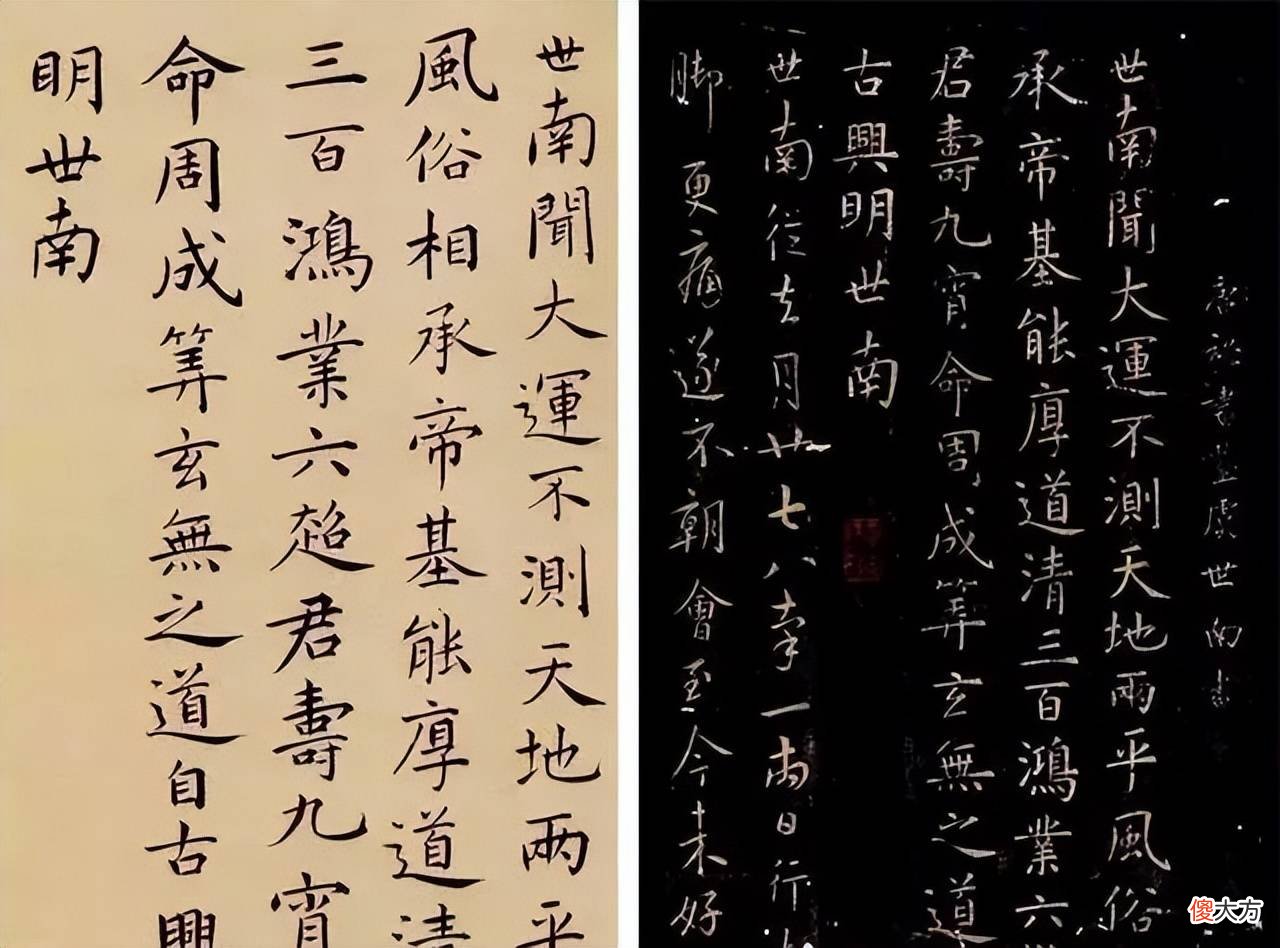 世南聞大運不測天地兩平
風俗相承帝基能厚道清
三百鴻業六超君壽九宵
命周成筭玄無之道自古興
明世南
唐秘書監虞世南書
世南聞大運不測天地兩平風俗
承帝基能厚道清三百鴻業六
君壽九宵命周成筭玄無之道
古興明世南
世南從去月廿七八率一兩日行
脚更痛遂不朝會至今未好
傻大方